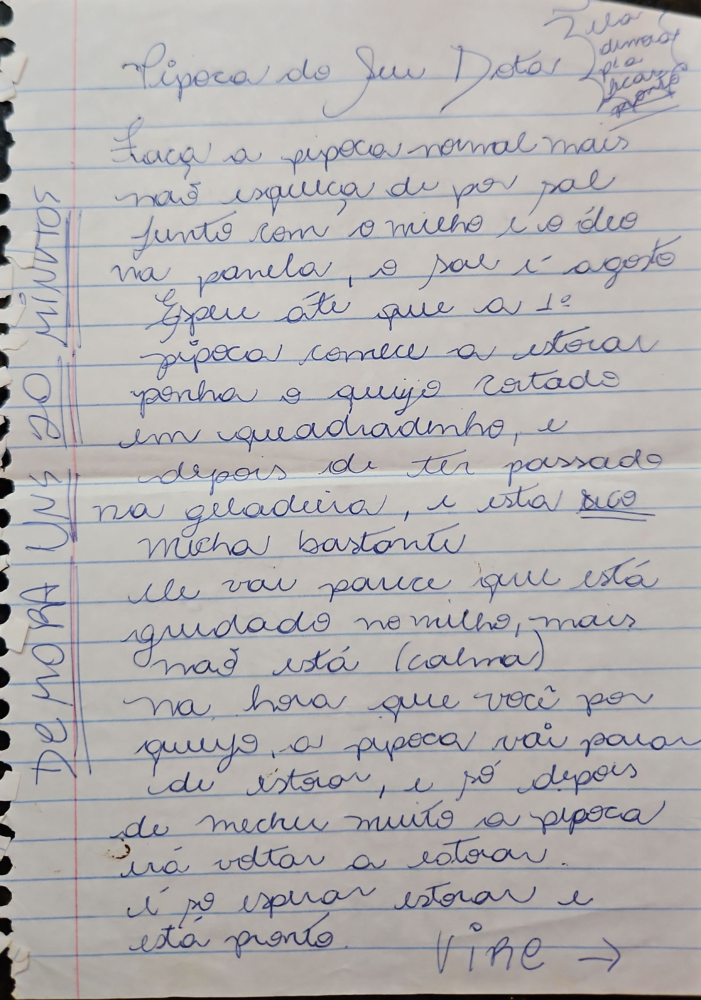 Pipoca do Seu Dota
ela
demora
pra
ficar
pronto
Faça a pipoca normal mais
não esqueça de por sal
junto com o milho e o óleo
na panela, o sal é agosto
Espere até que a 1ª
pipoca comece a estorar
ponha o queijo cortado
em queadradinho, e
depois de ter passado
na geladeira, e esta seco
mecha bastante
ele vai parece que está
grudado no milho, mais
não está (calma)
na hora que você por
queijo, a pipoca vai parar
de estorar, e só depois
de mecher muito a pipoca
irá voltar a estorar.
é só esperar estorar e
está pronto.
VIRE →
DEMORA UNS 20 MINUTOS